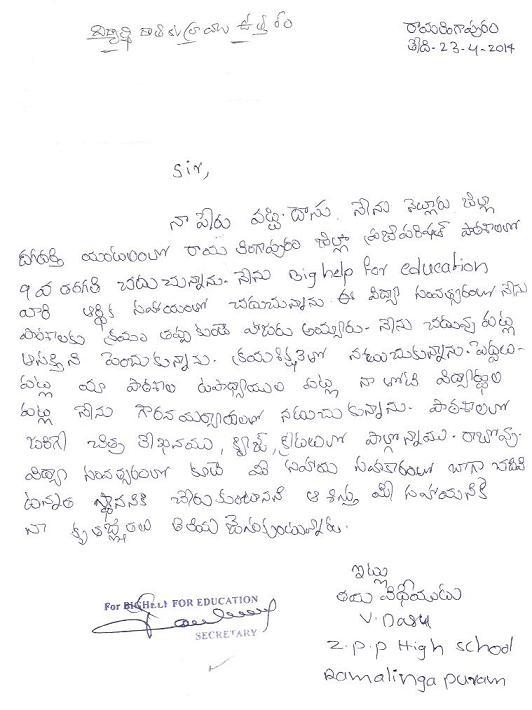 విద్యార్థి రాతకు ప్రాయు ఉత్తరం
రామలింగాపురం
తేది - 23-4-2014
Sir,
నా పేరు వట్టి. దాసు. నేను నెల్లూరు జిల్లా
మండలంలో రామలింగాపురం జిల్లా ప్రజాపరిషత్ పాఠశాలలో
9 వ తరగతి చదువుచున్నాను. నేను Big help for education
వారి ఆర్థిక సహాయంతో చదువుచున్నాను. ఈ విద్యా సంవత్సరంలో నేను
పాఠశాలకు క్రమం తప్పకుండా హాజరు అయ్యాను. నేను చదువు పట్ల
ఆసక్తిని పెంచుకున్నాను. క్రమశిక్షణతో నడుచుకున్నాను. పెద్దలు
పట్ల మా పాఠశాల ఉపాధ్యాయుల పట్ల నా తోటి విద్యార్థుల
పట్ల నేను గౌరవ మర్యాదలతో నడుచుకున్నాను. పాఠశాలలో
జరిగే చిత్ర లేఖనము, క్విజ్, క్రీడలలో పాల్గొన్నాను. రాబోవు
విద్యా సంవత్సరంలో కూడా మీ సహాయ సహకారంతో బాగా చదివి
ఉన్నత స్థానానికి చేరుకుంటానని ఆశిస్తూ మీ సహాయానికి
నా కృతజ్ఞతలు తెలియ చేసుకుంటున్నాను.
ఇట్లు
తమ విధేయుడు
V. Dasu
Z.P.P High school
Ramalinga puram
For BIGHELP FOR EDUCATION
SECRETARY